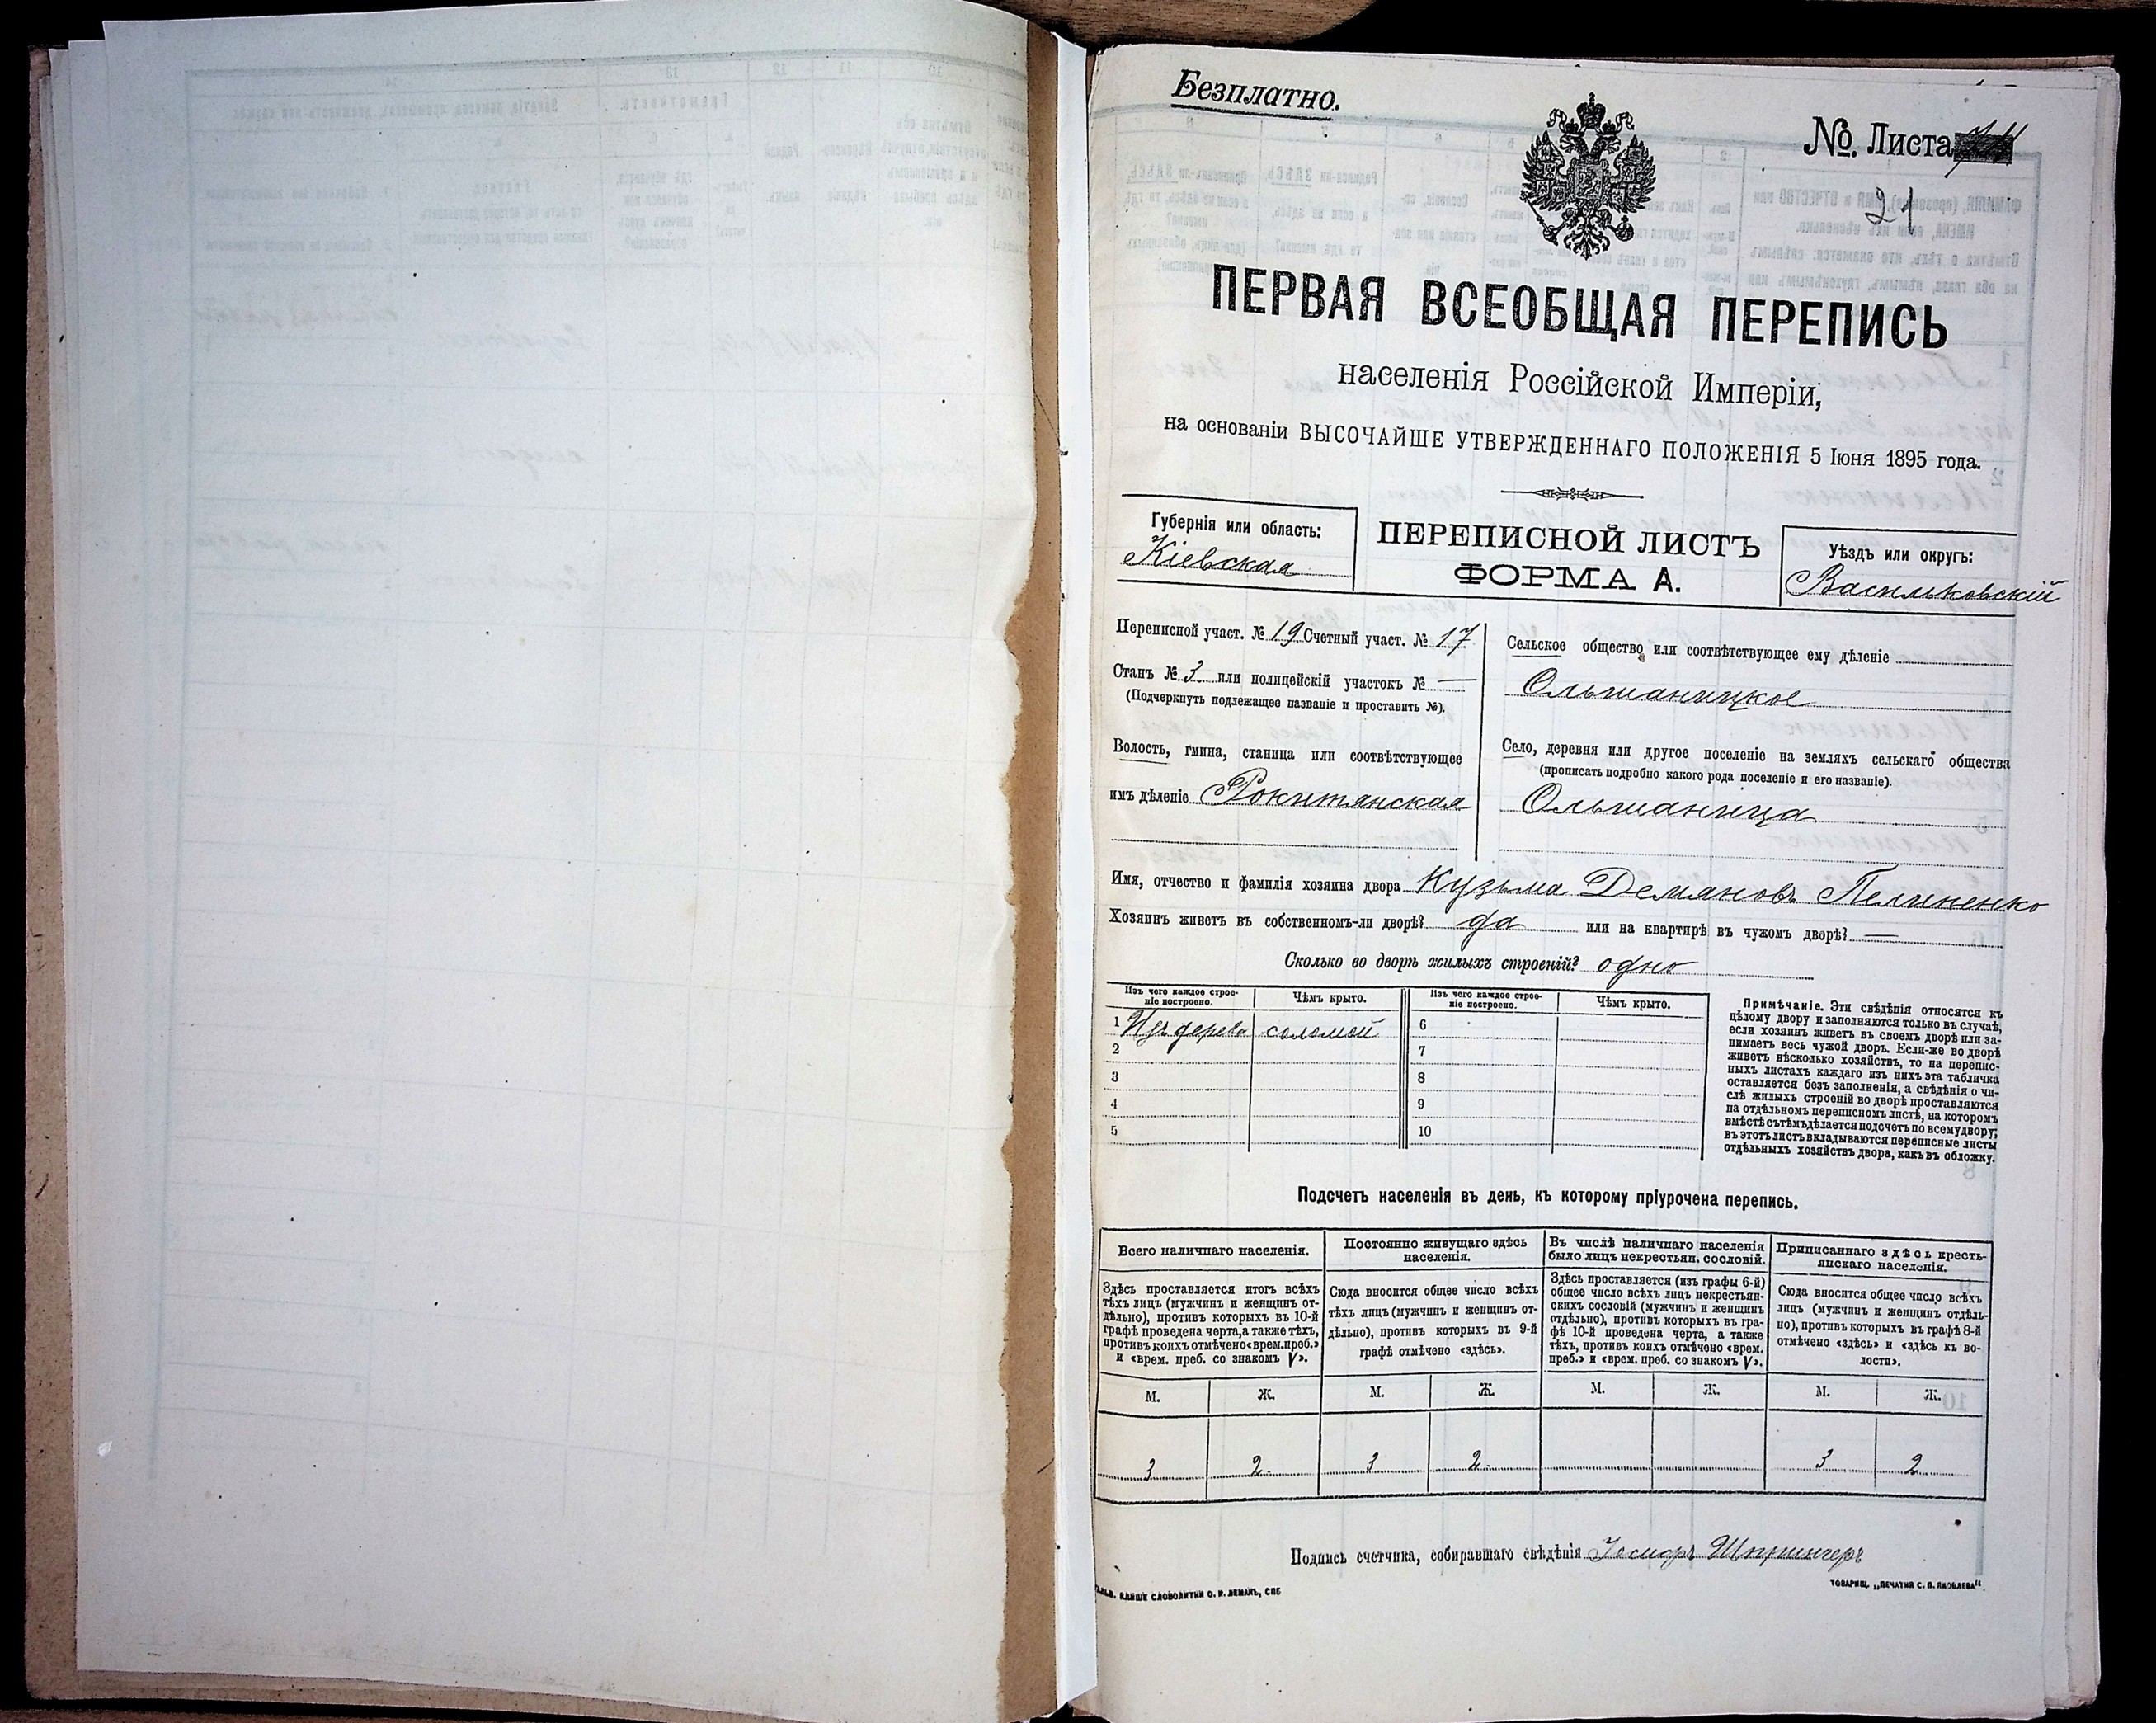 Безплатно.
№. Листа
21
ПЕРВАЯ ВСЕОБЩАЯ ПЕРЕПИСЬ
населенія Россійской Имперіи,
на основаніи ВЫСОЧАЙШЕ УТВЕРЖДЕННАГО ПОЛОЖЕНІЯ 5 Іюня 1895 года.
Губернія или область:
Кіевская
ПЕРЕПИСНОЙ ЛИСТЪ
ФОРМА А.
Уѣздъ или округъ:
Васильковскій
Переписной участ. № 19 Счетный участ. № 17
Станъ № 3 или полицейскій участокъ № —
(Подчеркнуть подлежащее названіе и проставить №).
Волость, гмина, станица или соотвѣтствующее
имъ дѣленіе Рокитянская
Сельское общество или соотвѣтствующее ему дѣленіе
Ольшаницкое
Село, деревня или другое поселеніе на земляхъ сельскаго общества
(прописать подробно какого рода поселеніе и его названіе).
Ольшаница
Имя, отчество и фамилія хозяина двора Кузьма Демяновъ Пелипенко
Хозяинъ живетъ въ собственномъ-ли дворѣ? да или на квартирѣ въ чужомъ дворѣ? —
Сколько во дворѣ жилыхъ строеній? одно
Изъ чего каждое строе-
ніе построено.
Чѣмъ крыто.
Изъ чего каждое строе-
ніе построено.
Чѣмъ крыто.
1 Изъ дерева соломой 6
2 7
3 8
4 9
5 10
Примѣчаніе. Эти свѣдѣнія относятся къ
цѣлому двору и заполняются только въ случаѣ,
если хозяинъ живетъ въ своемъ дворѣ или за-
нимаетъ весь чужой дворъ. Если-же во дворѣ
живетъ нѣсколько хозяйствъ, то на перепис-
ныхъ листахъ каждаго изъ нихъ эта табличка
оставляется безъ заполненія, а свѣдѣнія о чи-
слѣ жилыхъ строеній во дворѣ проставляются
на отдѣльномъ переписномъ листѣ, на которомъ
вмѣстѣ съ тѣмъ дѣлается подсчетъ по всему двору;
въ этотъ листъ вкладываются переписные листы
отдѣльныхъ хозяйствъ двора, какъ въ обложку.
Подсчетъ населенія въ день, къ которому пріурочена перепись.
Всего наличнаго населенія.
Здѣсь проставляется итогъ всѣхъ
тѣхъ лицъ (мужчинъ и женщинъ от-
дѣльно), противъ которыхъ въ 10-й
графѣ проведена черта, а также тѣхъ,
противъ коихъ отмѣчено «врем. преб.»
и «врем. преб. со знакомъ V».
Постоянно живущаго здѣсь
населенія.
Сюда вносится общее число всѣхъ
тѣхъ лицъ (мужчинъ и женщинъ от-
дѣльно), противъ которыхъ въ 9-й
графѣ отмѣчено «здѣсь».
Въ числѣ наличнаго населенія
было лицъ некрестьян. сословій.
Здѣсь проставляется (изъ графы 6-й)
общее число всѣхъ лицъ некрестьян-
скихъ сословій (мужчинъ и женщинъ
отдѣльно), противъ которыхъ въ гра-
фѣ 10-й проведена черта, а также
тѣхъ, противъ коихъ отмѣчено «врем.
преб.» и «врем. преб. со знакомъ V».
Приписаннаго здѣсь кресть-
янскаго населенія.
Сюда вносится общее число всѣхъ
лицъ (мужчинъ и женщинъ отдѣль-
но), противъ которыхъ въ графѣ 8-й
отмѣчено «здѣсь» и «здѣсь къ во-
лости».
М. Ж. М. Ж. М. Ж. М. Ж.
3 2 3 2 3 2
Подпись счетчика, собиравшаго свѣдѣнія Іосифъ Шпрингеръ
КЛИШЕ СЛОВОЛИТНИ О. И. ЛЕМАНЪ, СПБ
ТОВАРИЩ. „ПЕЧАТНЯ С. П. ЯКОВЛЕВА“